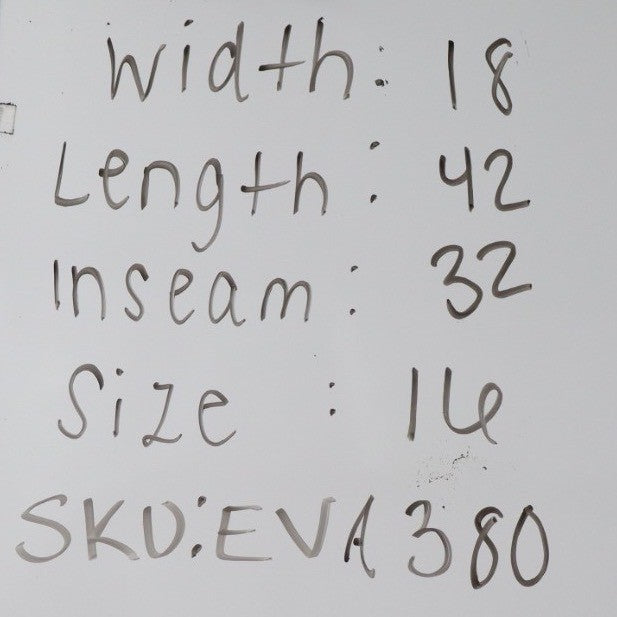 Width: 18
Length: 42
Inseam: 32
Size : 16
SKU:EVA380